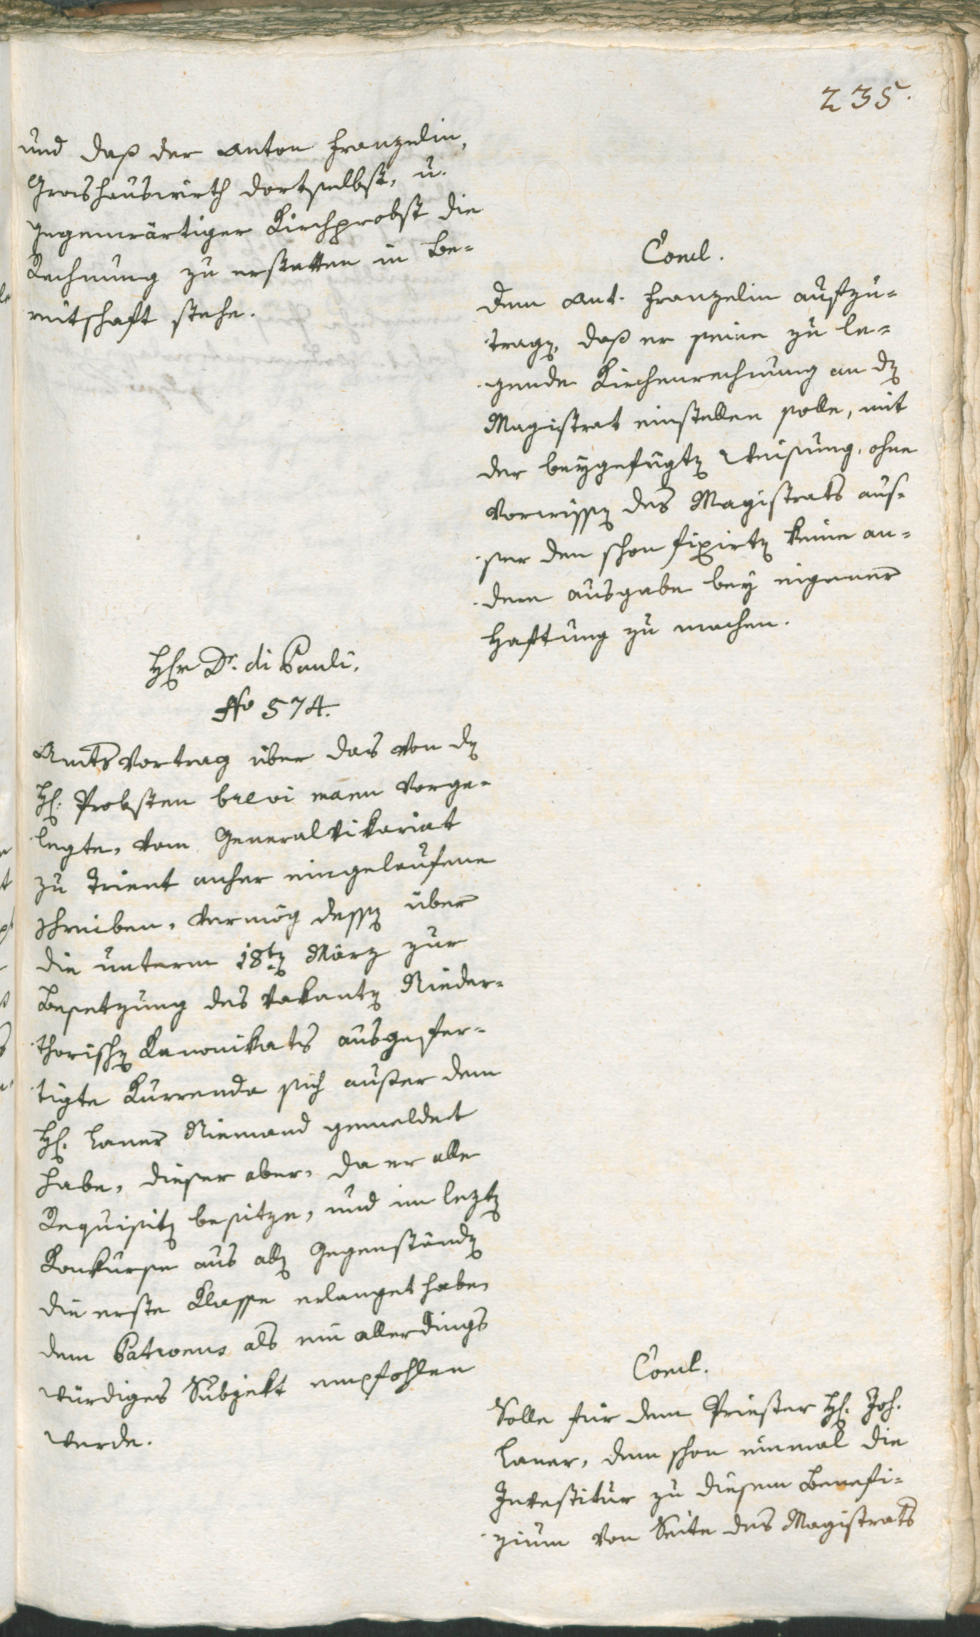 235.
und daß der Anton Franzelin,
Grashauswirth dortselbst, u.
gegenwärtiger Kirchprobst die
Rechnung zu erstatten in Be-
reitschaft stehe.
Concl.
Dem Ant. Franzelin aufzu-
tragen, daß er seine zu le-
gende Kirchenrechnung an den
Magistrat einstellen solle, mit
der beygefügten Weisung, ohne
Vorwissen des Magistrats aus-
ser den schon fixirten keine an-
dern Ausgabe bey eigener
Haftung zu machen.
Herr Dr. di Pauli.
No 574.
Amts Vortrag über das von dem
H. Probsten brevi manu vorge-
legte, vom Generalvikariat
zu Trient anher eingelaufene
Schreiben, vermög dessen über
die unterm 18ten März zur
Besetzung des vakanten Nieder-
thorischen Kanonikats ausgefer-
tigte Kurrenda sich außer dem
H. Laner Niemand gemeldet
habe, dieser aber, da er alle
Requisiten besitze, und im lezten
Konkurse aus allen Gegenständen
die erste Klasse erlanget habe
dem Patronus als ein allerdings
würdiges Subjekt empfohlen
werde.
Concl.
Solle für dem Priester H. Joh.
Laner, dem schon einmal die
Investitur zu diesem Benefi-
zium von Seite des Magistrats